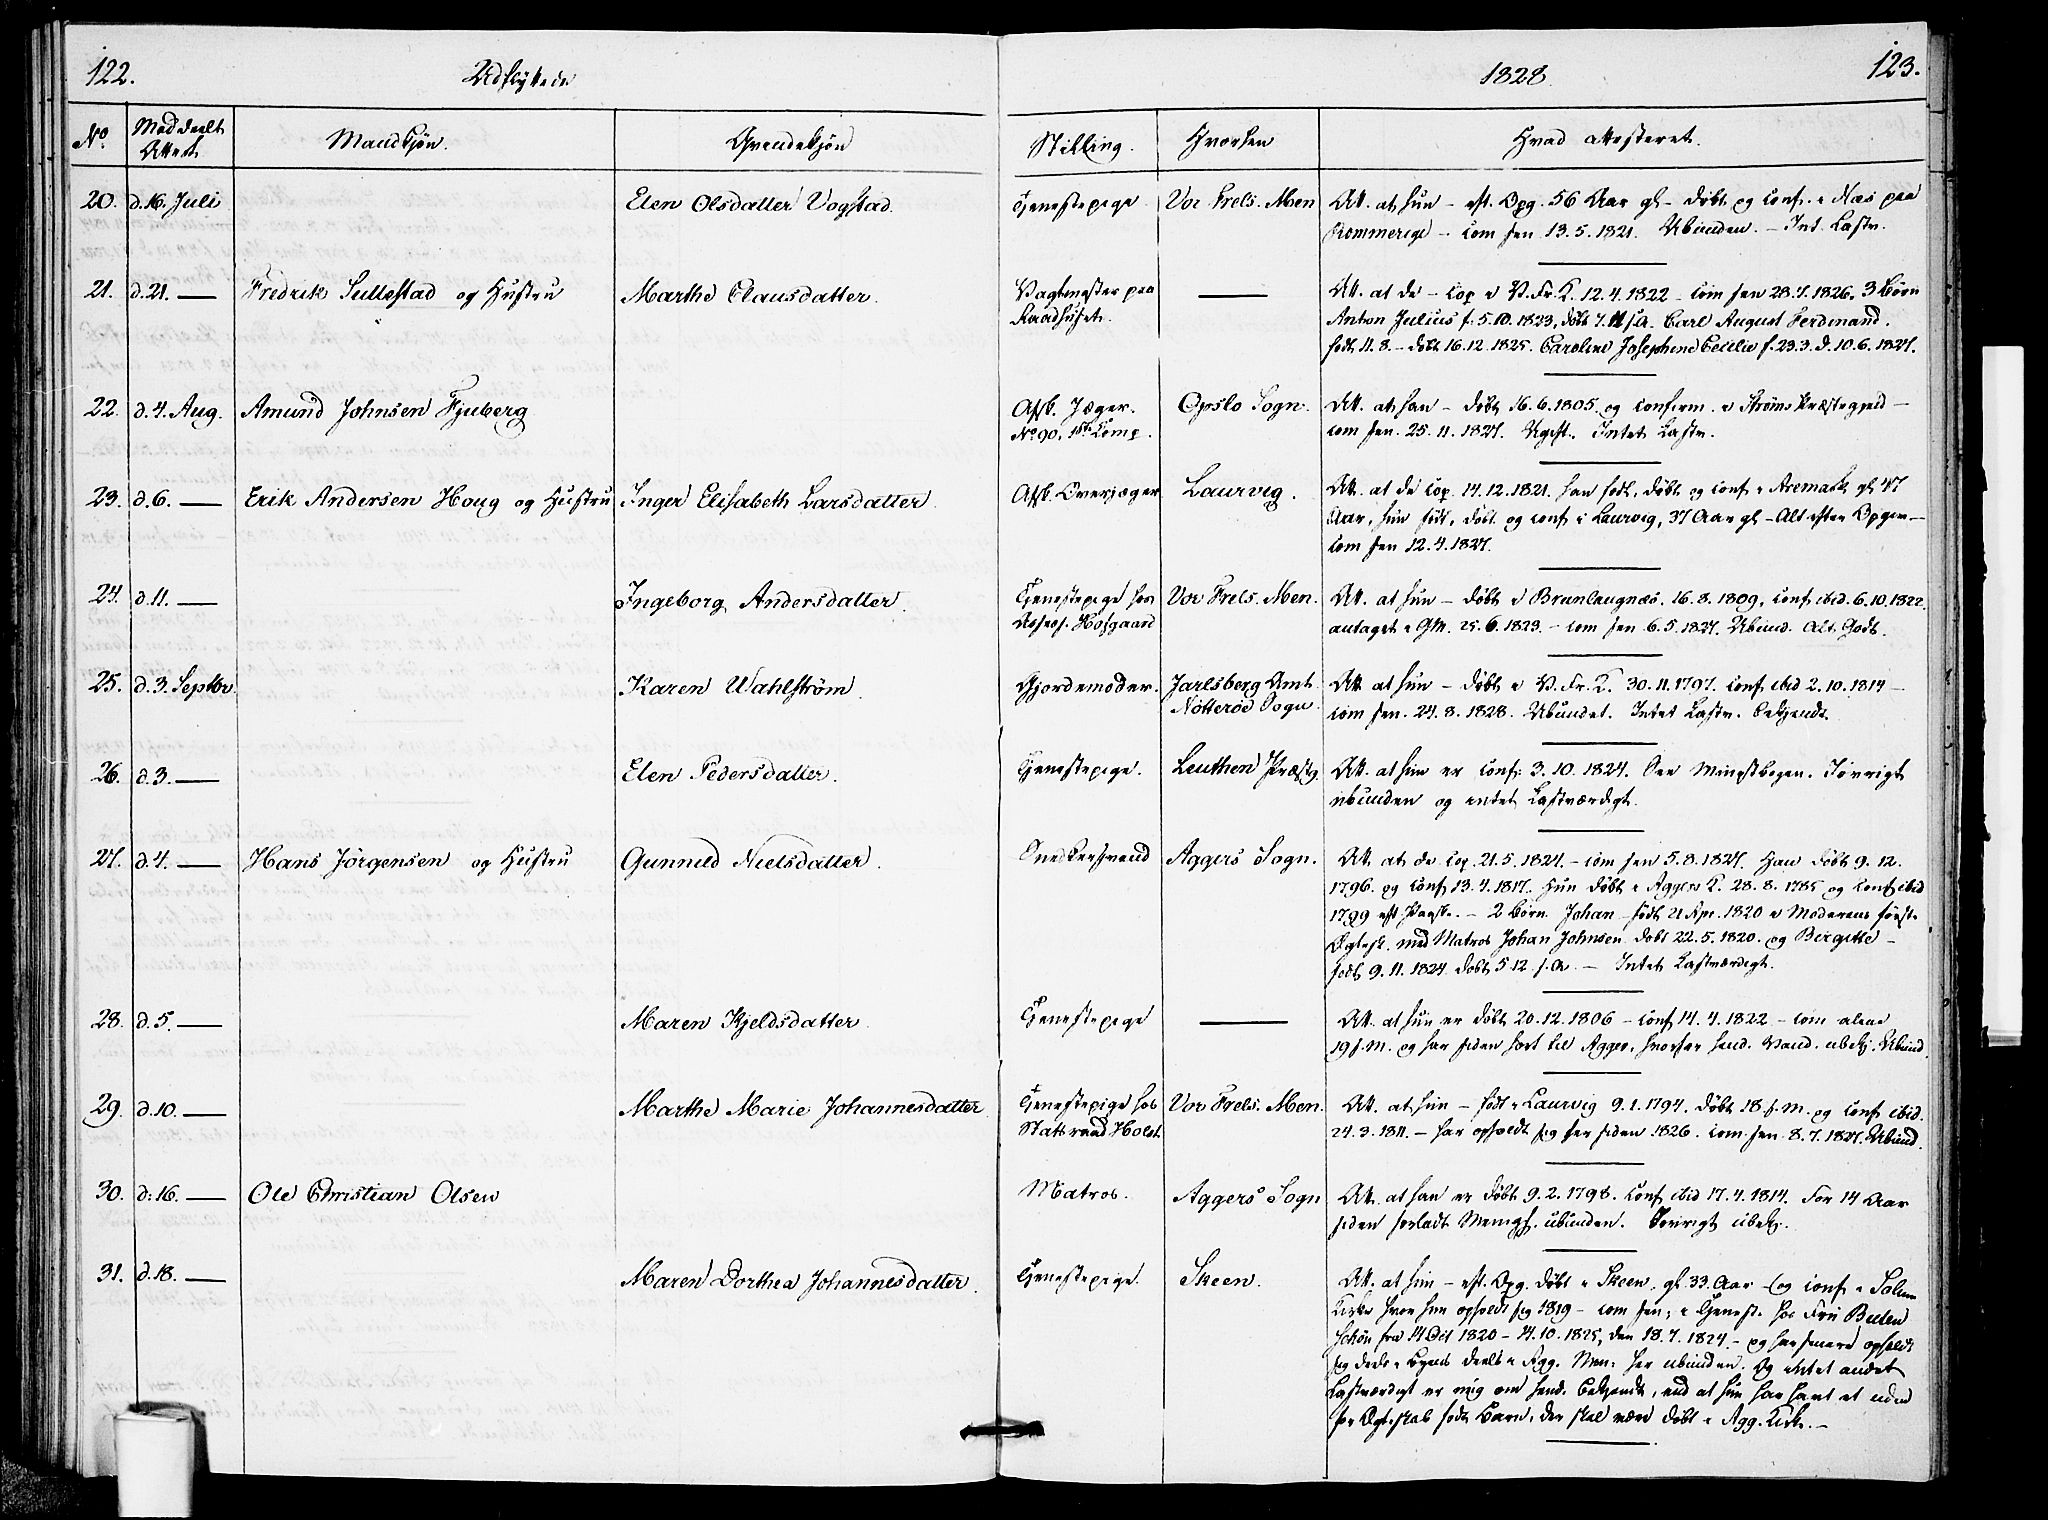 122. Udflyttede 1828. 123.
No. Meddeelt Attest Mandkjøn. Qvindekjøn Stilling. Hvorhen Hvad attesteret.
20. d. 16. Juli Elen Olsdatter Vogstad. Tjenestepige Vor Frels. Men Att. at hun – eft. Opg. 56 Aar gl – døbt og conf. i Næs paa
Rommerige – com her 13.5.1821. Ubunden. – Int. Lastv.
21. d. 21. — Fredrik Sullestad og Hustru Marthe Clausdatter. Vagtmester paa — Att. at de – cop i V. Fr. K. 12.4.1822 – com her 28.7.1826. 3 Børn
Raadhuset. Anton Julius f. 5.10.1823, døbt 7.11 s.A. Carl August Ferdinand.
født 11.8. – døbt 16.12.1825. Caroline Josephine Cecilie f. 23.3. d. 10.6.1827.
22. d. 4. Aug. Amund Johnsen Fjuberg Afsk. Jæger. Opslo Sogn. Att. at han – døbt 16.6.1805. og confirm. i Strøms Præstegjeld –
No 90, 1ste Comp. com her. 25.11.1827. Ugift. Intet Lastv.
23. d. 6. — Erik Andersen Houg og Hustru Inger Elisabeth Larsdatter. Afsk. Overjæger Laurvig. Att. at de cop. 14.12.1821. han født, døbt og conf i Aremark gl 47
Aar, hun født, døbt og conf i Laurvig, 37 Aar gl – Alt efter Opgiv –
com her 12.4.1827.
24. d. 11. — Ingeborg Andersdatter. Tjenestepige hos Vor Frels. Men. Att. at hun – døbt i Brunlaugnæs. 16.8.1809, conf ibid. 6.10.1822.
Assess. Hofgaard antaget i GM. 25.6.1823. – com her 6.5.1827. Ubund. Alt Godt.
25. d. 3. Septbr Karen Wahlstrøm. Gjordemoder. Jarlsberg Amt Att. at hun – døbt i V. Fr. K. 30.11.1797. conf ibid 2.10.1814 –
Nøtterøe Sogn. com her. 24.8.1828. Ubundet. Intet Lastv. bekjendt.
26. d. 3. — Elen Pedersdatter. Tjenestepige. Leuthen Præstg. Att. at hun er conf: 3.10.1824. See Mingstbogen. Iøvrigt
ubunden og intet Lastværdigt.
27. d. 4. — Hans Jørgensen og Hustru Gunnild Nielsdatter. Snedkersvend Aggers Sogn. Att. at de cop. 21.5.1824. – com her 5.8.1827. Han døbt 9.12.
1796. og conf 13.4.1817. hun døbt i Aggers K. 28.8.1785 og conf ibid
1799 eft. Paaske. – 2 Børn. Johan – født 21 Apr. 1820 i Moderens første
Ægtesk. med Matros Johan Johnsen døbt 22.5.1820. og Birgitte –
født 9.11.1824 døbt 5 12 s.A. – Intet Lastværdigt.
28. d. 5. — Maren Kjeldsdatter. Tjenestepige — Att. at hun er døbt 20.12.1806 – conf 14.4.1822 – com alene
19 s.M. og har siden hørt til Agger, hvorfor hend. Vand. ubekj. Ubund.
29. d. 10. — Marthe Marie Johannesdatter. Tjenestepige hos Vor Frels. Men. Att. at hun – født i Laurvig 9.1.1794. døbt 18 s.M. og conf ibid.
Statsraad Holst 24.3.1811. – har opholdt sig her siden 1826. com her 8.7.1827. Ubund.
30. d: 16. — Ole Christian Olsen Matros. Aggers Sogn Att. at han er døbt 9.2.1798. conf ibid 17.4.1814. For 14 Aar
siden forladt Menigh. ubunden. Iøvrigt ubekj.
31. d. 18. — Maren Dorthea Johannesdatter. Tjenestepige. Skeen. Att. at hun – eft. Opg. døbt i Skeen. gl. 33 Aar – og conf i Solum
Kirke hvor hun opholdt sig 1819 – com her, i Tjenest. hos Fru
Schøn fra 14 Oct 1820 – 14.10.1825, den 18.7.1824 – og har senere opholdt
sig deels i Byens deels i Agg. Men: her ubunden. Og intet andet
Lastværdigt er mig om hend. bekjendt, end at hun har havt et uden
for Ægteskab født Barn, der skal være døbt i Agg. Kirke. –